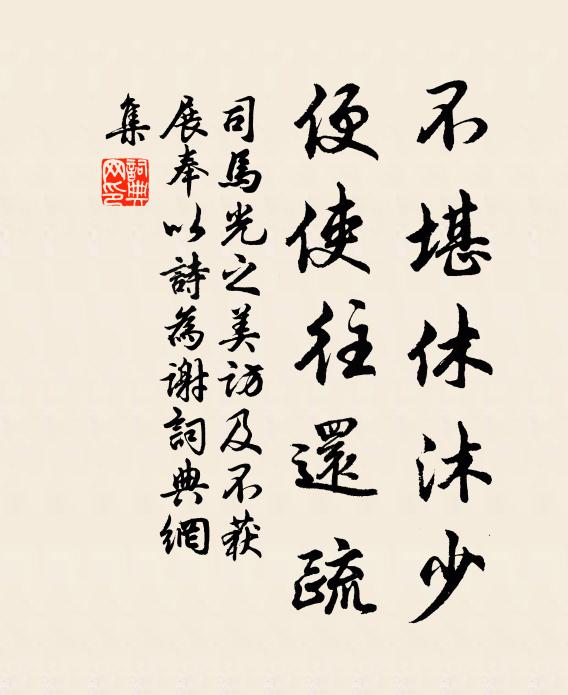 不堪休沐少
便使往還疏
司馬光之美訪及不获
展奉以詩為谢詞典網
集
詞典網印